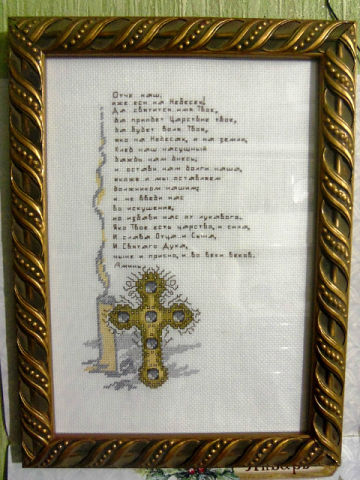 Отче наш,
иже еси на Небесех!
Да святится имя Твое,
да придет Царствие твое,
да будет воля Твоя,
яко на Небесах, и на земли,
Хлеб наш насущный
даждь нам днесь;
и остави нам долги наша,
якоже и мы оставляем
должником нашим;
и не введи нас
во искушение,
но избави нас от лукавого.
Яко Твое есть царство, и сила,
И слава Отца и Сына,
И Святаго Духа,
ныне и присно, и во веки веков.
Аминь.
Январь